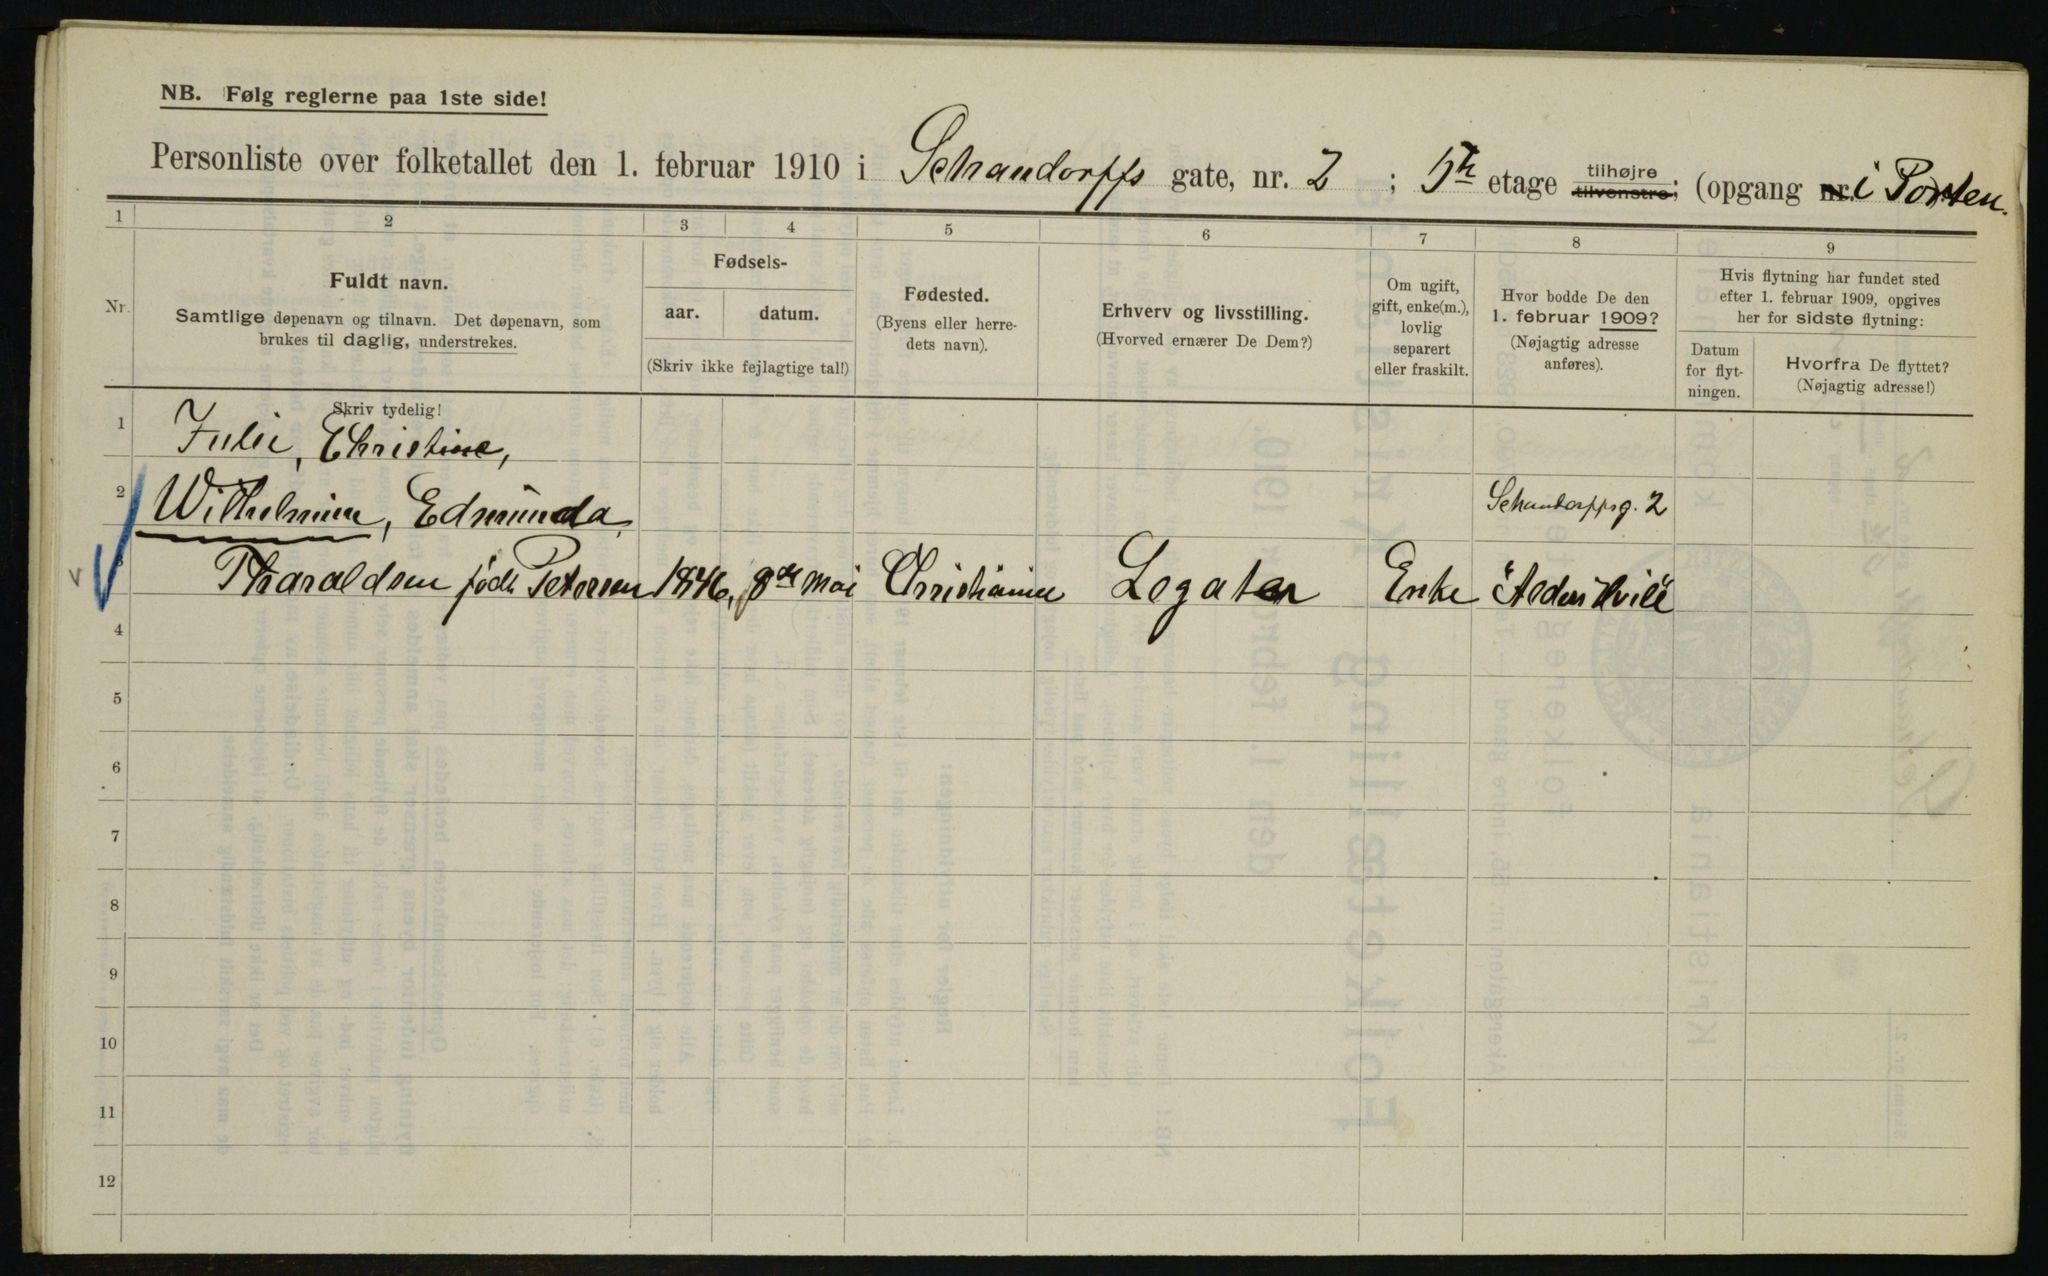 NB. Følg reglerne paa 1ste side!
Personliste over folketallet den 1. februar 1910 i Schandorffs gate, nr. 2 ; 5te etage tilhøjre tilvenstre; (opgang nr. i Porten.
1 2 3 4 5 6 7 8 9
Nr.
Fuldt navn.
Samtlige døpenavn og tilnavn. Det døpenavn, som
brukes til daglig, understrekes.
Fødsels-
aar. datum.
(Skriv ikke fejlagtige tal!)
Fødested.
(Byens eller herre-
dets navn).
Erhverv og livsstilling.
(Hvorved ernærer De Dem?)
Om ugift,
gift, enke(m.),
lovlig
separert
eller fraskilt.
Hvor bodde De den
1. februar 1909?
(Nøjagtig adresse
anføres).
Hvis flytning har fundet sted
efter 1. februar 1909, opgives
her for sidste flytning:
Datum
for flyt-
ningen.
Hvorfra De flyttet?
(Nøjagtig adresse!)
Skriv tydelig!
1 Julie, Christine,
2 Wilhelmine, Edmunda, Schandorffsg. 2
Tharaldsen født Petersen 1846, 8de Mai Christiania Legater Enke "Alders Hvile"
4
5
6
7
8
9
10
11
12